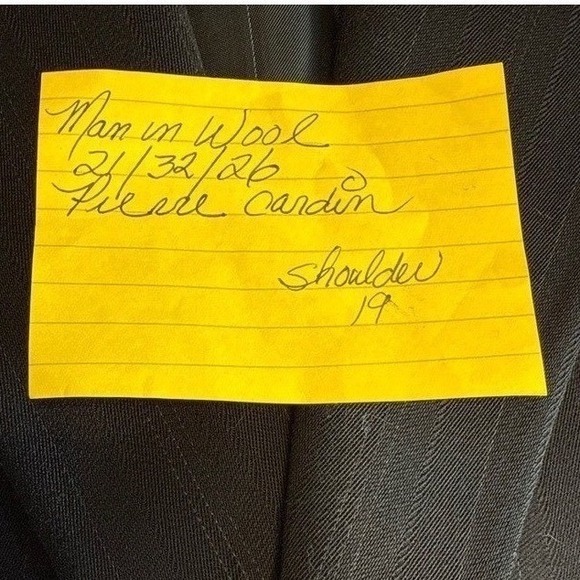 Man in Wool
21/32/26
Pierre Cardin
Shoulder
19